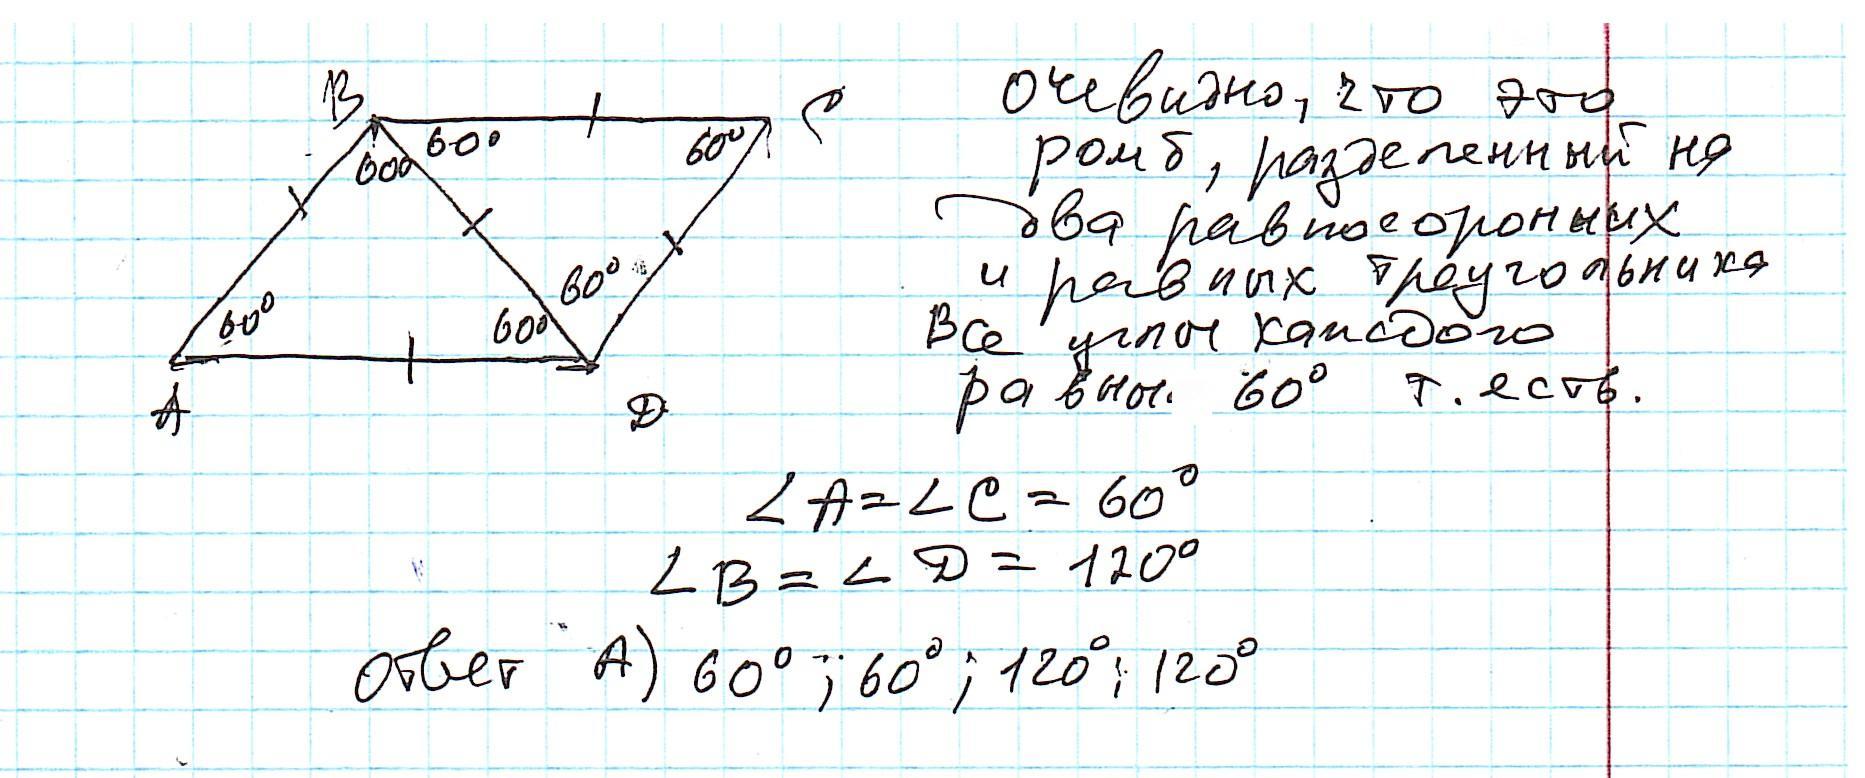 B
C
60°
60°
60°
60°
60°
60°
A
D
Очевидно, что это
ромб, разделенный на
два равносоронних
и равных треугольника
Все углы каждого
равны. 60° т. есть.
∠A=∠C = 60°
∠B = ∠D = 120°
Ответ А) 60°; 60°; 120°; 120°